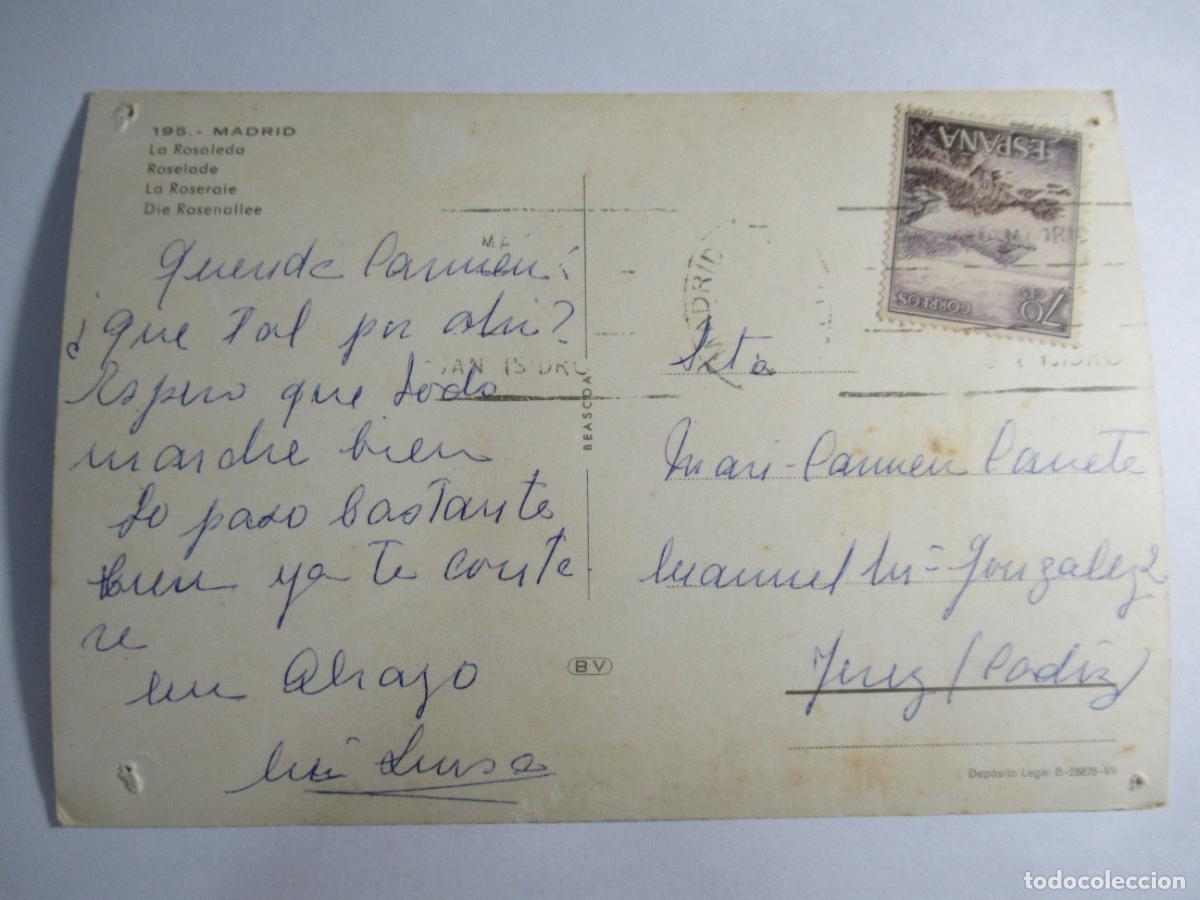 195.- MADRID
La Rosaleda
Roselade
La Roseraie
Die Rosenallee
Querida Carmen:
¿que tal por ahi?
Espero que todo
marche bien
Lo paso bastante
bien ya te conta
re
un Abrazo
Mª Luisa
BEASCOA
BV
MADRID
SAN ISIDRO
ESPAÑA
CORREOS
70 CTS
Srta
Mari-Carmen Canete
Manuel Mª Gonzalez 2
Jerez (Cadiz)
Depósito Legal B-25875-VII
todocoleccion